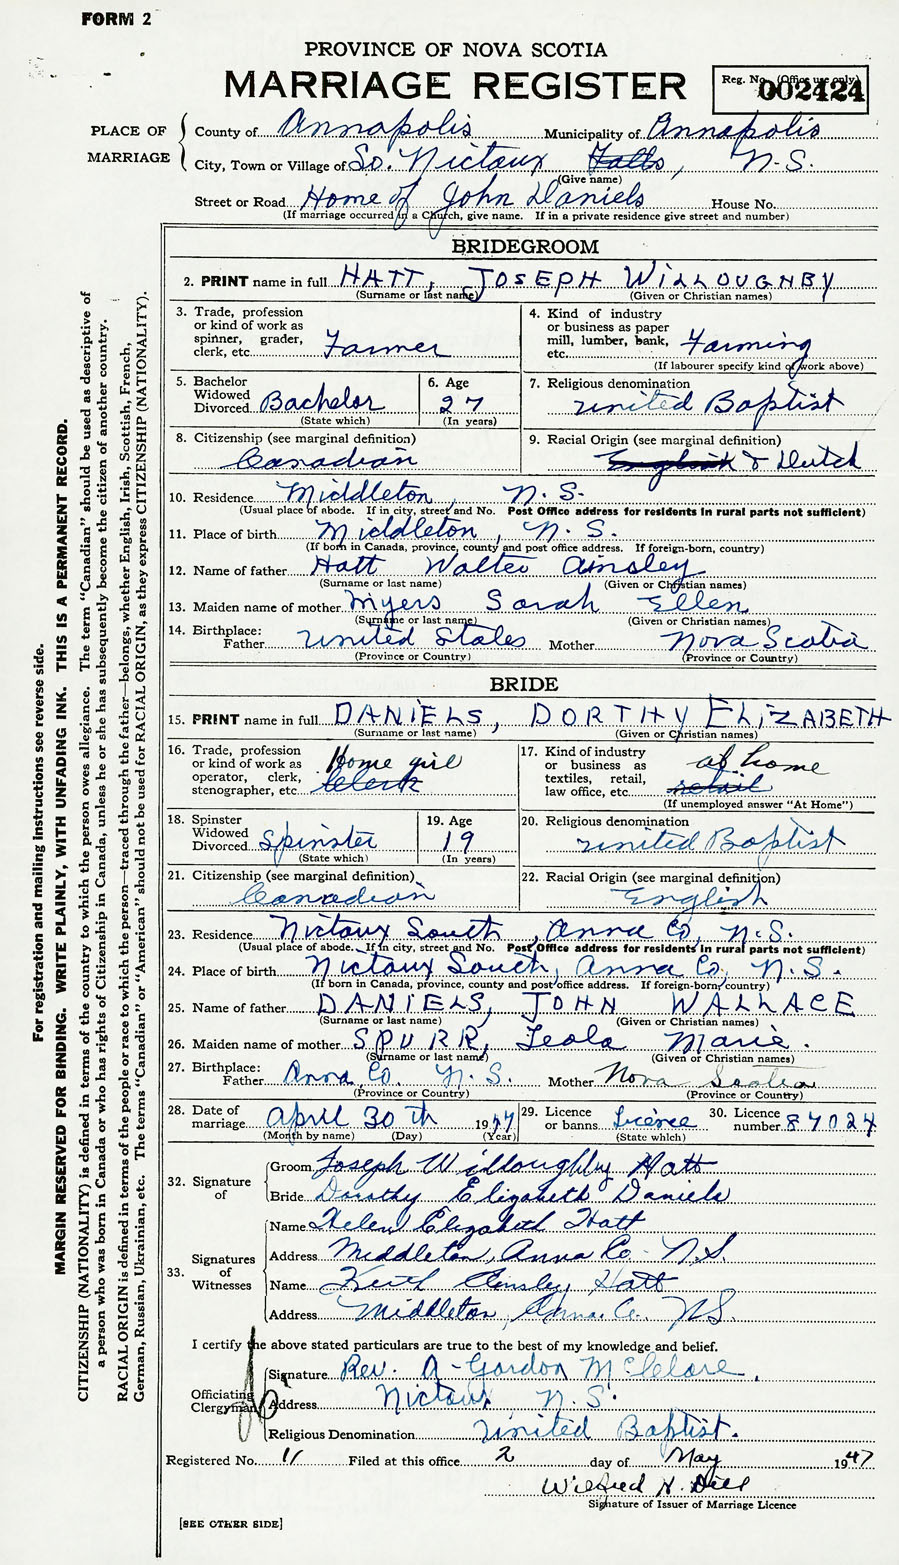 FORM 2
PROVINCE OF NOVA SCOTIA
MARRIAGE REGISTER
Reg. No. (Office use only)
002424
PLACE OF MARRIAGE
County of Annapolis Municipality of Annapolis
City, Town or Village of So. Nictaux Falls, N.S.
(Give name)
Street or Road Home of John Daniels House No.
(If marriage occurred in a Church, give name. If in a private residence give street and number)
BRIDEGROOM
2. PRINT name in full HATT, JOSEPH WILLOUGHBY
(Surname or last name) (Given or Christian names)
3. Trade, profession or kind of work as spinner, grader, clerk, etc. Farmer
4. Kind of industry or business as paper mill, lumber, bank, etc. Farming
(If labourer specify kind of work above)
5. Bachelor Widowed Divorced Bachelor
(State which)
6. Age 27
(In years)
7. Religious denomination
United Baptist
8. Citizenship (see marginal definition)
Canadian
9. Racial Origin (see marginal definition)
English & Dutch
10. Residence Middleton, N.S.
(Usual place of abode. If in city, street and No. Post Office address for residents in rural parts not sufficient)
11. Place of birth Middleton, N.S.
(If born in Canada, province, county and post office address. If foreign-born, country)
12. Name of father Hatt Walter Ainsley
(Surname or last name) (Given or Christian names)
13. Maiden name of mother Myers Sarah Ellen
(Surname or last name) (Given or Christian names)
14. Birthplace: Father United States Mother Nova Scotia
(Province or Country) (Province or Country)
BRIDE
15. PRINT name in full DANIELS, DORTHY ELIZABETH
(Surname or last name) (Given or Christian names)
16. Trade, profession or kind of work as operator, clerk, stenographer, etc Home girl Clerk
17. Kind of industry or business as textiles, retail, law office, etc. at home retail
(If unemployed answer "At Home")
18. Spinster Widowed Divorced Spinster
(State which)
19. Age 19
(In years)
20. Religious denomination
United Baptist
21. Citizenship (see marginal definition)
Canadian
22. Racial Origin (see marginal definition)
English
23. Residence Nictaux South, Anna Co, N.S.
(Usual place of abode. If in city, street and No. Post Office address for residents in rural parts not sufficient)
24. Place of birth Nictaux South, Anna Co, N.S.
(If born in Canada, province, county and post office address. If foreign-born, country)
25. Name of father DANIELS, JOHN WALLACE
(Surname or last name) (Given or Christian names)
26. Maiden name of mother SPURR, Leola Marie.
(Surname or last name) (Given or Christian names)
27. Birthplace: Father Anna Co. N.S. Mother Nova Scotia
(Province or Country) (Province or Country)
28. Date of marriage April 30th 1947
(Month by name) (Day) (Year)
29. Licence or banns Licence
(State which)
30. Licence number 87024
32. Signature of
Groom Joseph Willoughby Hatt
Bride Dorothy Elizabeth Daniels
33. Signatures of Witnesses
Name Helen Elizabeth Hatt
Address Middleton, Anna Co. N.S.
Name Keith Ainsley Hatt
Address Middleton, Anna Co. N.S.
I certify the above stated particulars are true to the best of my knowledge and belief.
Officiating Clergyman
Signature Rev. A. Gordon
Address Nictaux, N.S.
Religious Denomination United Baptist.
Registered No. 11 Filed at this office 2 day of May 1947
Wilfred H. Dill
Signature of Issuer of Marriage Licence
[SEE OTHER SIDE]
For registration and mailing instructions see reverse side.
MARGIN RESERVED FOR BINDING. WRITE PLAINLY, WITH UNFADING INK. THIS IS A PERMANENT RECORD.
CITIZENSHIP (NATIONALITY) is defined in terms of the country to which the person owes allegiance. The term "Canadian" should be used as descriptive of
a person who was born in Canada or who has rights of Citizenship in Canada, unless he or she has subsequently become the citizen of another country.
RACIAL ORIGIN is defined in terms of the people or race to which the person—traced through the father—belongs, whether English, Irish, Scottish, French,
German, Russian, Ukrainian, etc. The terms "Canadian" or "American" should not be used for RACIAL ORIGIN, as they express CITIZENSHIP (NATIONALITY).